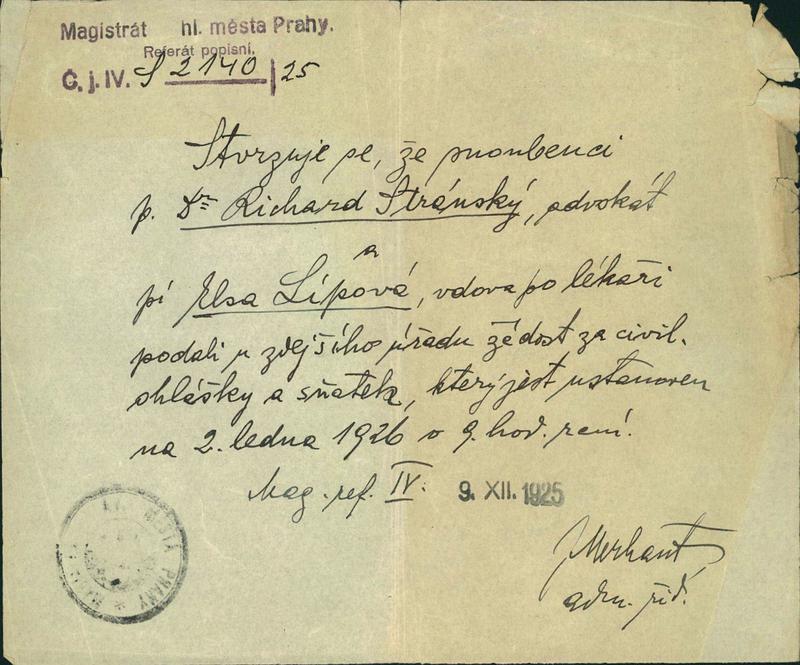 Magistrát hl. města Prahy.
Referát popisní.
Č. j. IV. S 2140 | 25
Stvrzuje se, že snoubenci
p. Dr Richard Stránský, advokát
a
pí Elsa Lípová, vdova po lékaři
podali u zdejšího úřadu žádost za civil.
ohlášky a sňatek, který jest ustanoven
na 2. ledna 1926 o 9. hod. ranní.
Mag. ref. IV. 9. XII. 1925
adm. řid.
MĚSTA PRAHY